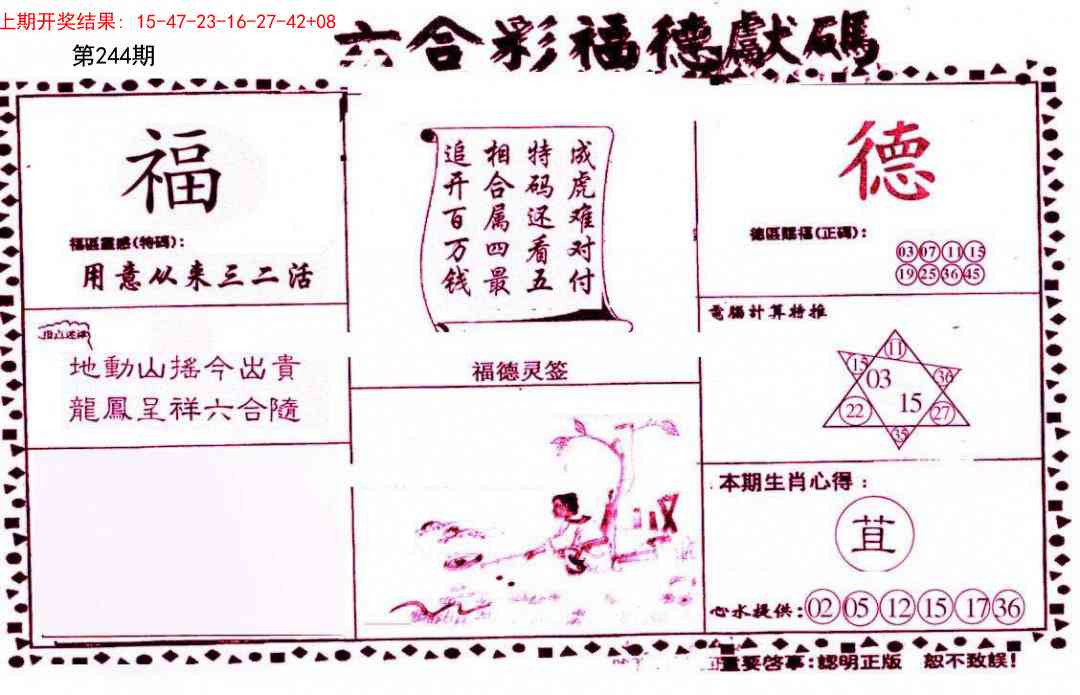 上期开奖结果：15-47-23-16-27-42+08
第244期
六合彩福德獻碼
福
福區靈感(特碼)：
用意从来三二活
地動山搖今出貴
龍鳳呈祥六合隨
成虎难对付
特码还看五
相合属四最
追开百万钱
福德灵签
德
德區賜福(正碼)：
03 07 11 15
19 25 36 45
電腦計算特推
11
15 36
03
15
22 27
35
本期生肖心得：
苴
心水提供：02 05 12 15 17 36
重要啓事：認明正版 恕不致誤！